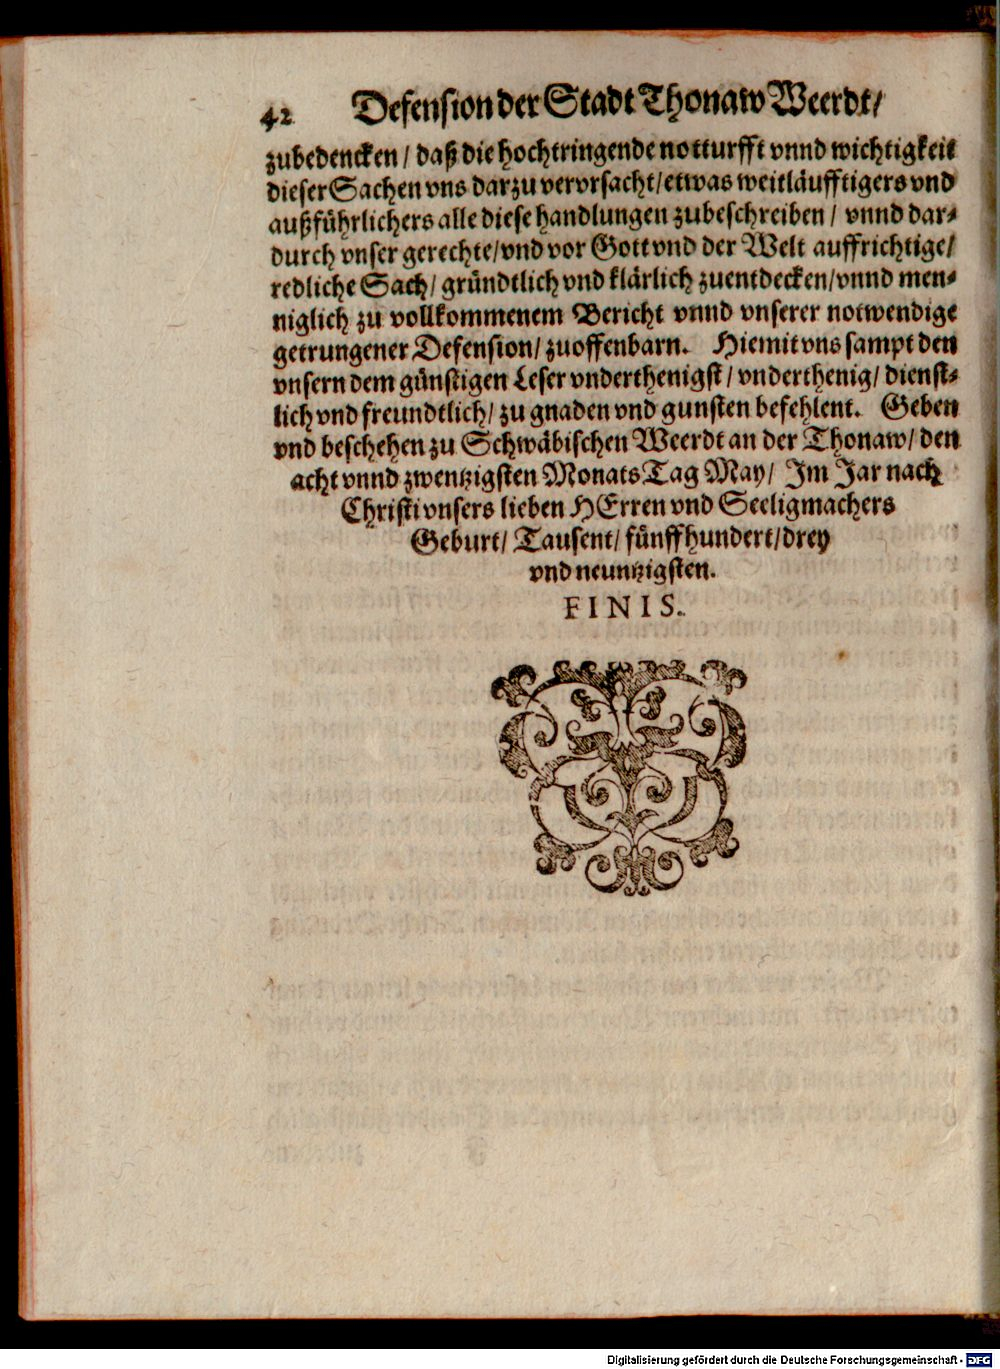 42 Defension der Stadt Thonaw Weerdt/
zubedencken / daß die hochtringende notturfft vnnd wichtigkeit
dieser Sachen vns darzu verursacht/etwas weitläufftigers vnd
außführlichers alle diese handlungen zubeschreiben / vnnd dar-
durch vnser gerechte/vnd vor Gott vnd der Welt auffrichtige/
redliche Sach/ gründtlich vnd klärlich zuentdecken/vnnd men-
niglich zu vollkommenem Bericht vnnd vnserer notwendige
getrungener Defension/ zuoffenbarn. Hiemit vns sampt den
vnsern dem günstigen Leser vnderthenigst/ vnderthenig/ dienst-
lich vnd freundtlich/ zu gnaden vnd gunsten befehlent. Geben
vnd beschehen zu Schwäbischen Weerdt an der Thonaw/ den
acht vnnd zwentzigsten Monats Tag May/ Im Jar nach
Christi vnsers lieben HErren vnd Seeligmachers
Geburt/ Tausent/ fünffhundert/drey
vnd neuntzigsten.
FINIS.
Digitalisierung gefördert durch die Deutsche Forschungsgemeinschaft - DFG